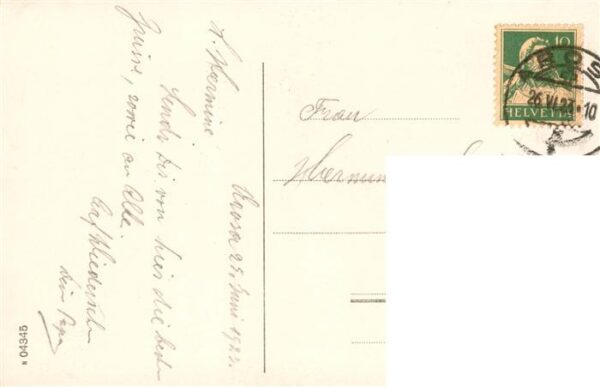 Arosa 25. Juni 1923.
L. Hermine!
Sende dir von hier die besten
Grüsse, sowie an Alle.
Auf Wiedersehn
dein Papa
Frau
10
HELVETIA
26.VI.23.10
N 04345